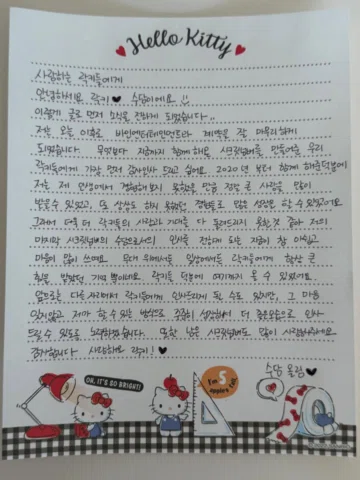 Hello Kitty
사랑하는 락키들에게
안녕하세요 락키 ♥ 수담이에요 !!
이렇게 글로 먼저 소식을 전하게 되었습니다..
저는 오늘 이후로 바인엔터테인먼트와 계약을 잘 마무리하게
되었습니다. 무엇보다 지금까지 함께해온 시크릿넘버를 만들어준 우리
락키들에게 가장 먼저 감사인사 드리고 싶어요. 2020년부터 함께 해준덕분에
저는 제 인생에서 경험해보지 못했을만큼 정말 큰 사랑을 많이
받을 수 있었고, 또 상상도 하지 못했던 경험들로 많은 성장을 할 수 있었어요
그래서 더욱 더 락키들의 사랑과 기대를 다 돌려드리지 못한것 같아 저의
마지막 시크릿넘버의 수담으로서의 인사를 전하게 되는 지금이 참 아쉽고
마음이 많이 쓰여요. 무대 위에서도 일상에서도 락키들에게 항상 큰
힘을 받았던 기억 뿐이네요. 락키들 덕분에 여기까지 올 수 있었어요.
앞으로는 다른 자리에서 락키들에게 인사드리게 될 수도 있지만, 그 마음
잊지않고 제가 할 수 있는 방법으로 조금씩 성장해서 더 좋은모습으로 인사
드릴 수 있도록 노력하겠습니다. 또한 남은 시크릿넘버도 많이 사랑해주세요.
감사합니다 사랑해요 락키 ! ♥
수담 올림 ♥
OH, IT'S SO BRIGHT!
I'm 5 apples tall.